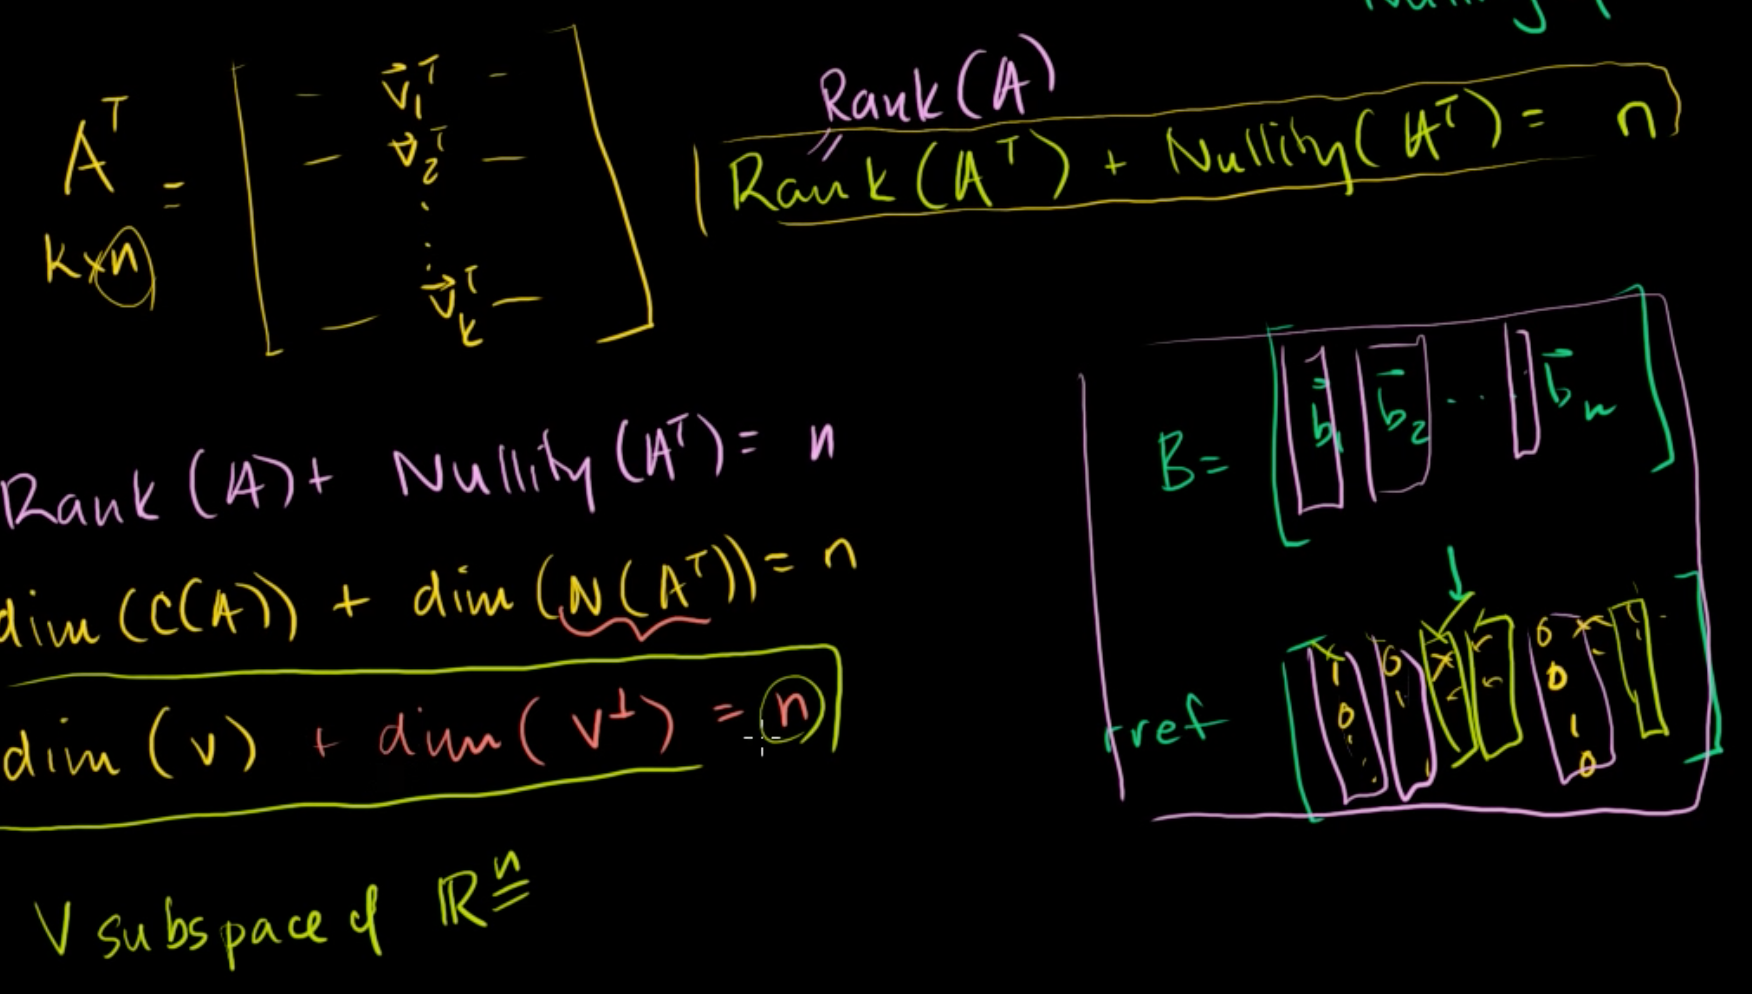 Rank(A)
A^T = [ – v⃗₁^T –
– v⃗₂^T –
⋮
– v⃗ₖ^T – ]
k×n
Rank(A^T) + Nullity(A^T) = n
Rank(A) + Nullity(A^T) = n
dim(C(A)) + dim(N(A^T)) = n
dim(V) + dim(V^⊥) = n
V subspace of ℝⁿ
B = [ b⃗₁ b⃗₂ ... b⃗ₙ ]
rref
1 0
0
0
0
1
0